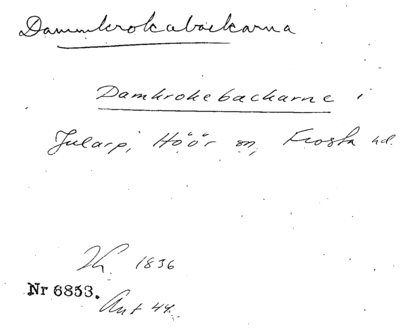 Dammkrokabackarna
Damkrokebackarne i
Jularp, Höör sn, Frosta hd.
1836
Nr 6853.
Ant 44.